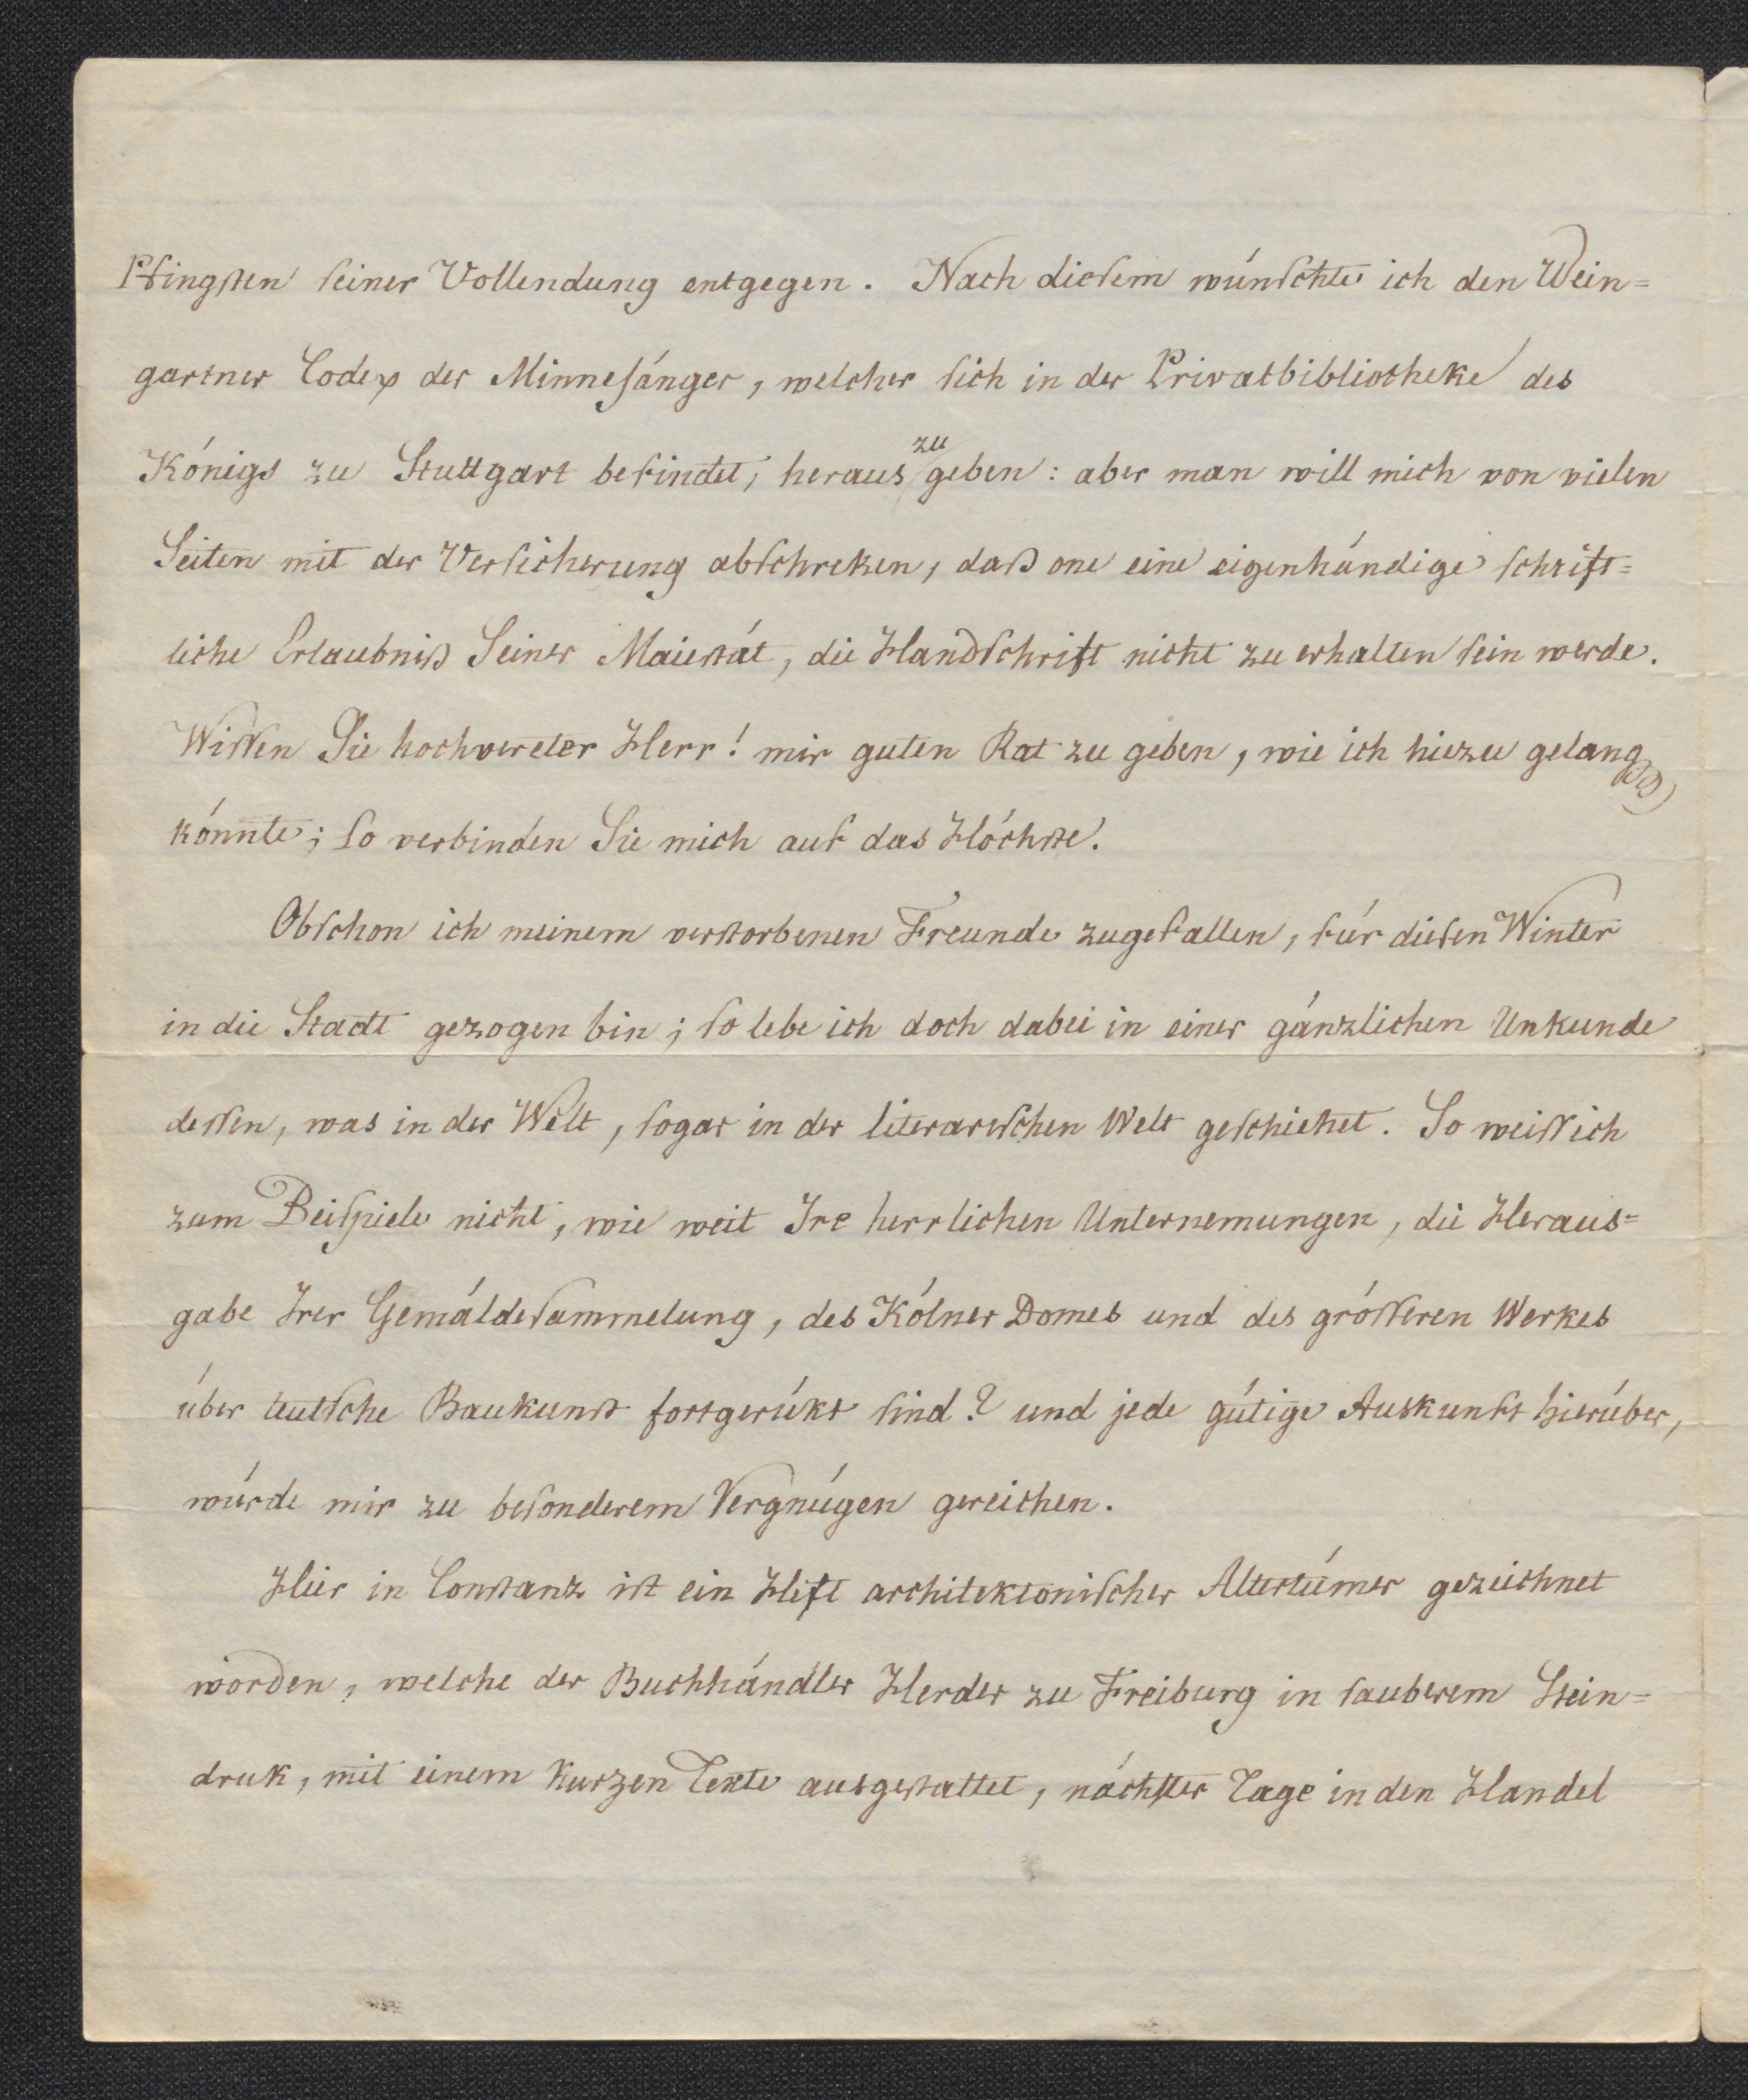 Pfingsten seiner Vollendung entgegen. Nach diesem wünschte ich den Wein=
gartner Codex der Minnesänger, welcher sich in der Privatbibliotheke des
Königs zu Stuttgart befindet, heraus zu geben: aber man will mich von vielen
Seiten mit der Versicherung abschreken, daß one eine eigenhändige schrift=
liche Erlaubniß Seiner Maiestät, die Handschrift nicht zu erhalten sein werde.
Wissen Sie hochvereter Herr! mir guten Rat zu geben, wie ich hiezu gelangen
könnte; so verbinden Sie mich auf das Höchste.
Obschon ich meinem verstorbenen Freunde zugefallen, für diesen Winter
in die Stadt gezogen bin; so lebe ich doch dabei in einer gänzlichen Unkunde
dessen, was in der Welt, sogar in der literarischen Welt geschiehet. So weiss ich
zum Beispiele nicht, wie weit Ire herrlichen Unternemungen, die Heraus=
gabe Irer Gemäldesammelung, des Kölner Domes und des grösseren Werkes
über teutsche Baukunst fortgerükt sind? und jede gütige Auskunft hierüber,
würde mir zu besonderem Vergnügen gereichen.
Hier in Constanz ist ein Heft architektonischer Altertümer gezeichnet
worden, welche der Buchhändler Herder zu Freiburg in sauberem Stein=
druk, mit einem kurzen Texte ausgestattet, nächster Tage in den Handel